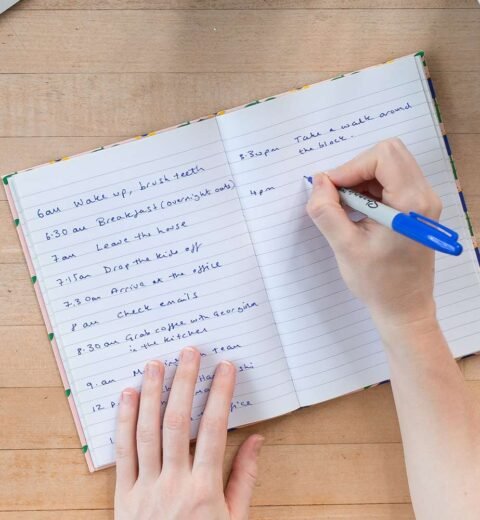 6am Wake up, brush teeth
6:30am Breakfast (overnight oats)
7am Leave the house
7:15am Drop the kids off
7.30am Arrive at the office
8am Check emails
8:30am Grab coffee with Georgina
in the kitchen
9.am Team
12
3.30pm Take a walk around
the block.
4pm